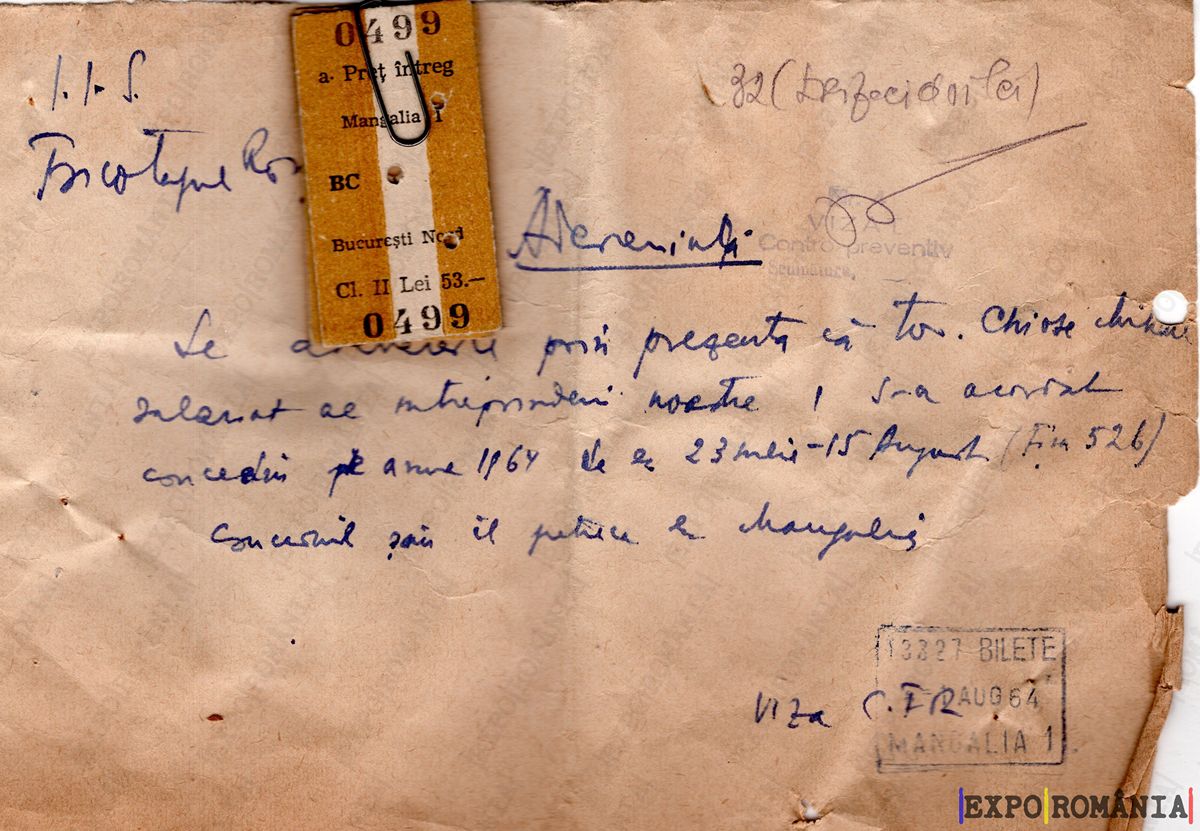 I.I.S.
Tricotajul Ro
0499
a Preț întreg
Mangalia 1
BC
București Nord
Cl. II Lei 53.—
0499
32
Adeverință
VIZAT
Control preventiv
Semnătura,
Se adeverește prin prezenta că tov. Chiose Mihai
salariat al întreprinderii noastre i s-a acordat
concediu pe anul 1964 de la 23 iulie-15 August (Fișa 526)
Concediul său îl petrece la Mangalia
Viza C.F.R
13327 BILETE
AUG 64
MANGALIA 1
EXPO ROMÂNIA